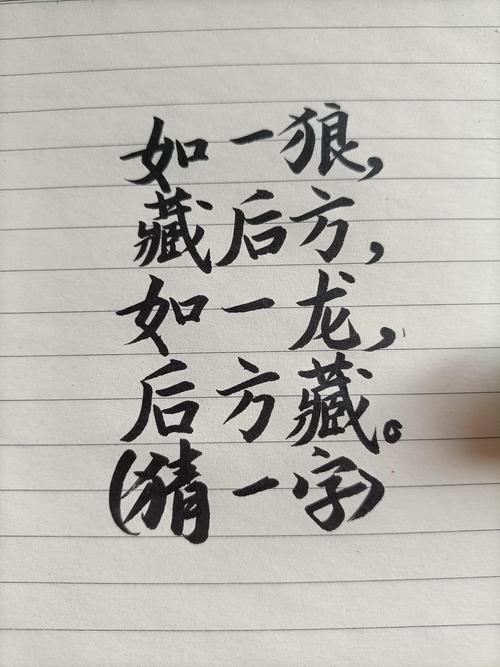 如一狼，
藏后方，
如一龙，
后方藏。
(猜一字)